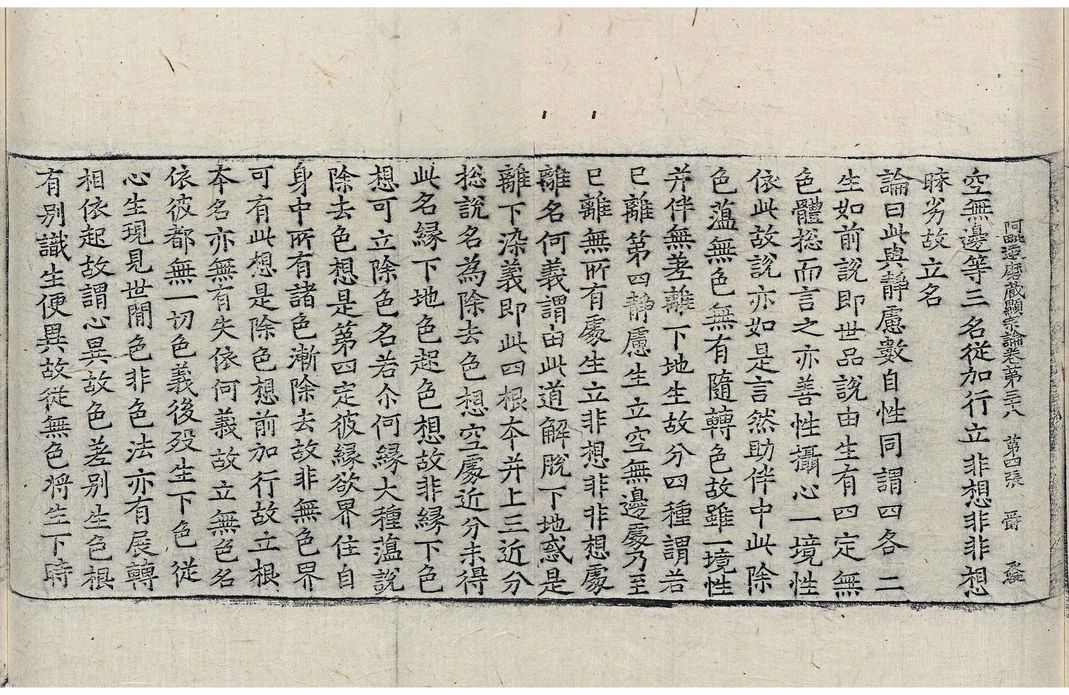 阿毗達磨藏顯宗論卷第三十八 第四張 爵
空無邊等三名從加行立非想非非想
昧劣故立名
論曰此與静慮數自性同謂四各二
生如前說即世品說由生有四定無
色體捴而言之亦善性攝心一境性
依此故說亦如是言然助伴中此除
色蕰無色無有隨轉色故雖一境性
并伴無差離下地生故分四種謂若
巳離第四静慮生立空無邊處乃至
巳離無所有處生立非想非非想處
離名何義謂由此道解脫下地惑是
離下染義即此四根本并上三近分
捴說名為除去色想空處近分未得
此名緣下地色起色想故非緣下色
想可立除色名若尒何緣大種蕰說
除去色想是第四定彼緣欲界住自
身中所有諸色漸除去故非無色界
可有此想是除色想前加行故立根
本名亦無有失依何義故立無色名
依彼都無一切色義後歿生下色從
心生現見世閒色非色法亦有展轉
相依起故謂心異故色差別生色根
有別識生便異故從無色將生下時